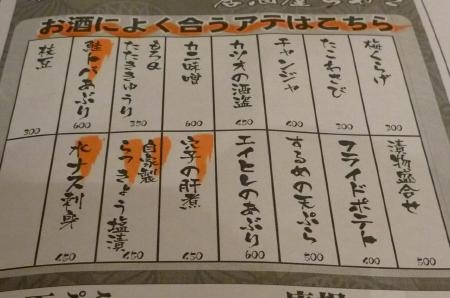 お酒によく合うアテはこちら
梅くらげ
300
たこわさび
300
チャンジャ
400
カツオの酒盗
400
カニ味噌
400
もろQ
たたききゅうり
350
鮭トバあぶり
600
枝豆
300
漬物盛合せ
500
フライドポテト
450
するめの天ぷら
500
エイヒレのあぶり
600
穴子の肝煮
450
自家製
らっきょう塩漬
450
水ナス刺身
450